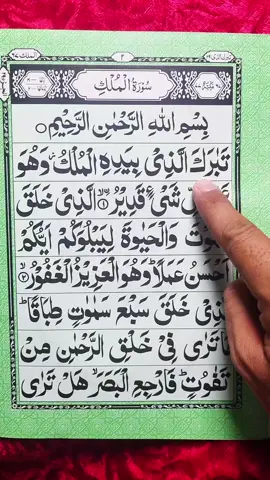 سُوْرَةُ الْمُلْكِ
بِسْمِ اللّٰهِ الرَّحْمٰنِ الرَّحِيْمِ
تَبٰرَكَ الَّذِىْ بِيَدِهِ الْمُلْكُ وَهُوَ
شَىْءٍ قَدِيْرُ ۙ﴿۱﴾ الَّذِىْ خَلَقَ
وَالْحَيٰوةَ لِيَبْلُوَكُمْ اَيُّكُمْ
اَحْسَنُ عَمَلًا ؕ وَهُوَ الْعَزِيْزُ الْغَفُوْرُ ۙ﴿۲﴾
خَلَقَ سَبْعَ سَمٰوٰتٍ طِبَاقًا ؕ
تَرٰى فِىْ خَلْقِ الرَّحْمٰنِ مِنْ
تَفٰوُتٍ ؕ فَارْجِعِ الْبَصَرَ ۙ هَلْ تَرٰى